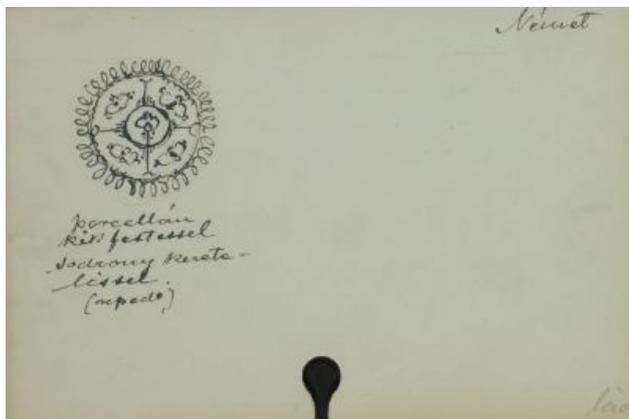 Német
porcellán
kék festessel
-sodrony kerete-
léssel.
(repedt)